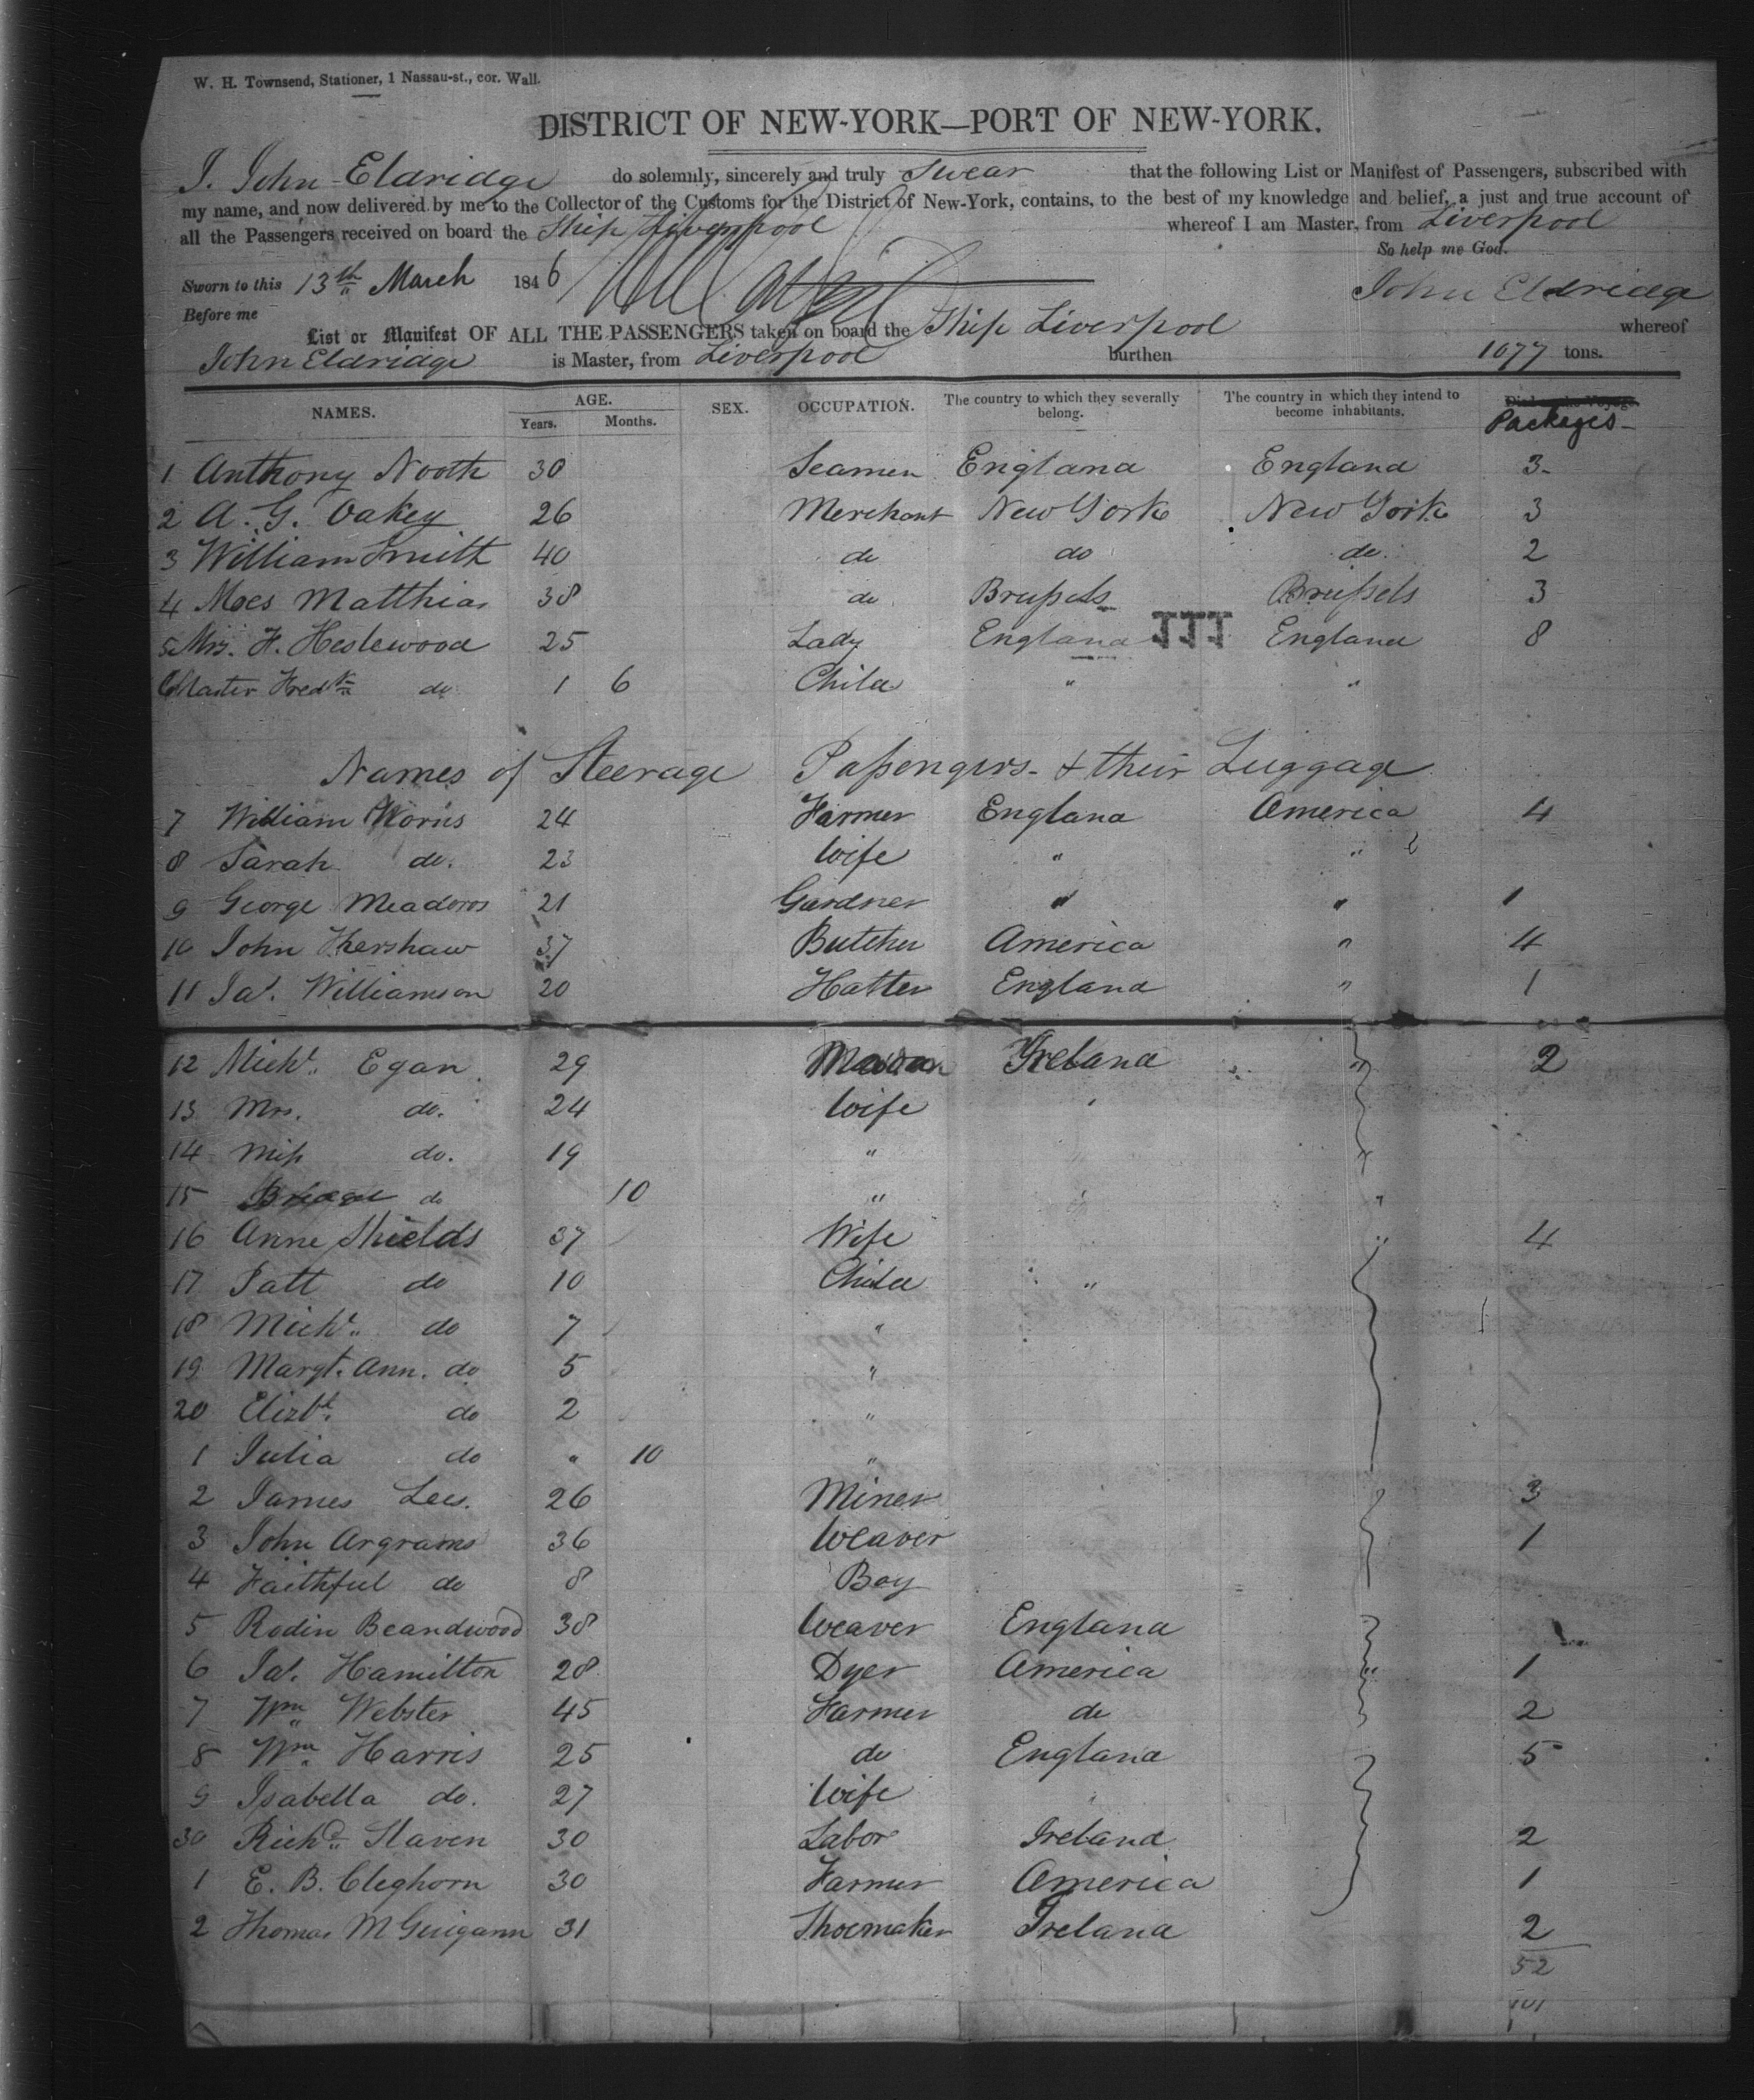 W. H. Townsend, Stationer, 1 Nassau-st., cor. Wall.
DISTRICT OF NEW-YORK—PORT OF NEW-YORK.
I. John Eldridge do solemnly, sincerely and truly Swear that the following List or Manifest of Passengers, subscribed with
my name, and now delivered by me to the Collector of the Customs for the District of New-York, contains, to the best of my knowledge and belief, a just and true account of
all the Passengers received on board the Ship Liverpool whereof I am Master, from Liverpool
So help me God.
Sworn to this 13th March 1846
John Eldridge
Before me
List or Manifest OF ALL THE PASSENGERS taken on board the Ship Liverpool whereof
John Eldridge is Master, from Liverpool burthen 1077 tons.
NAMES. AGE. Years. Months. SEX. OCCUPATION. The country to which they severally belong. The country in which they intend to become inhabitants. Packages
1 Anthony North 30 Seamen England England 3
2 A. G. Oakey 26 Merchant New York New York 3
3 William Smith 40 do do do 2
4 Moes Matthias 38 do Brussels Brussels 3
5 Mrs. F. Heslewood 25 Lady England England 8
111
6 Master Fredk do 1 6 Child " "
Names of Steerage Passengers & their Luggage
7 William Norris 24 Farmer England America 4
8 Sarah do. 23 Wife " "
9 George Meadows 21 Gardner " " 1
10 John Kershaw 37 Butcher America " 4
11 Jas. Williamson 20 Hatter England " 1
12 Michl. Egan 29 Ireland " 2
13 Mrs. do. 24 Wife
14 Miss do. 19 "
15 do 10 " "
16 Anne Shields 37 Wife " 4
17 Patt do 10 Child "
18 Michl. do 7 "
19 Margt. Ann. do 5 "
20 Elizbth do 2 "
1 Julia do " 10 "
2 James Lees. 26 Miner 3
3 John Argrams 36 Weaver 1
4 Faithful do 8 Boy
5 Rodin Beandwood 38 Weaver England
6 Jas. Hamilton 28 Dyer America " 1
7 Wm Webster 45 Farmer do 2
8 Wm Harris 25 do England 5
9 Isabella do. 27 Wife
30 Richd Slaven 30 Labor Ireland 2
1 E. B. Cleghorn 30 Farmer America 1
2 Thomas McGuigann 31 Shoemaker Ireland 2
52
101